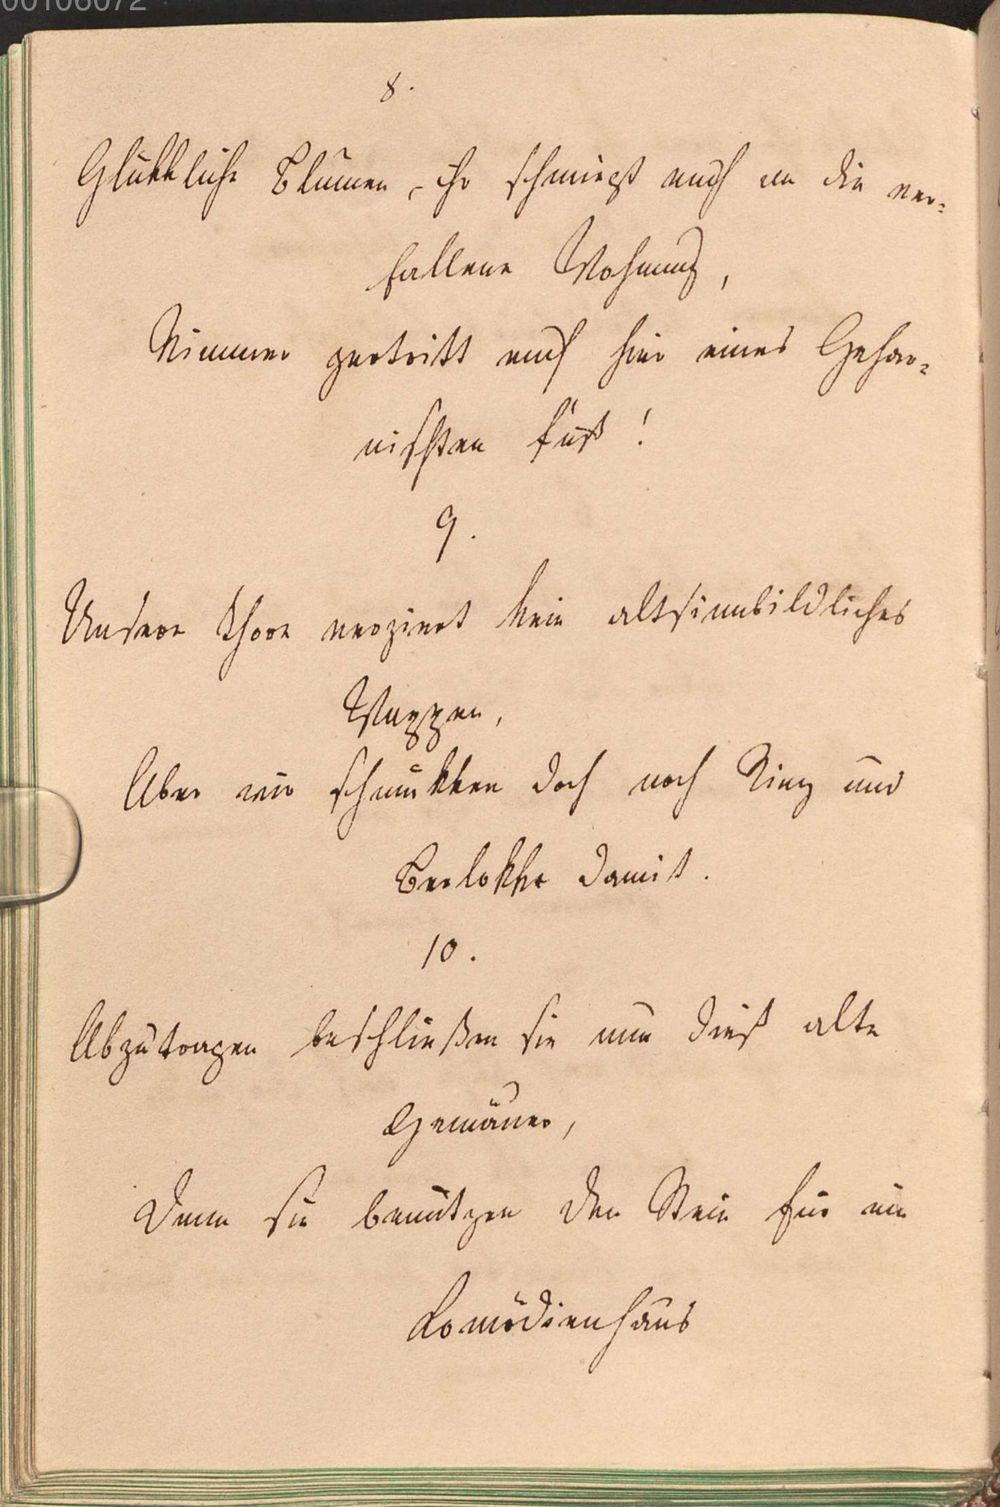 00106072
8.
Glükkliche Blumen, ihr schmiegt euch an die ver=
fallene Wohnung,
Nimmer zertritt euch hier eines Gehar=
nischten Fuß!
9.
Unsere Thore verziert kein altsinnbildliches
Wappen,
Aber wir schmükken doch noch Ring und
Berlokke damit.
10.
Abzutragen beschließen sie nun dieß alte
Gemäuer,
Denn sie benützen den Stein für ein
Komödienhaus